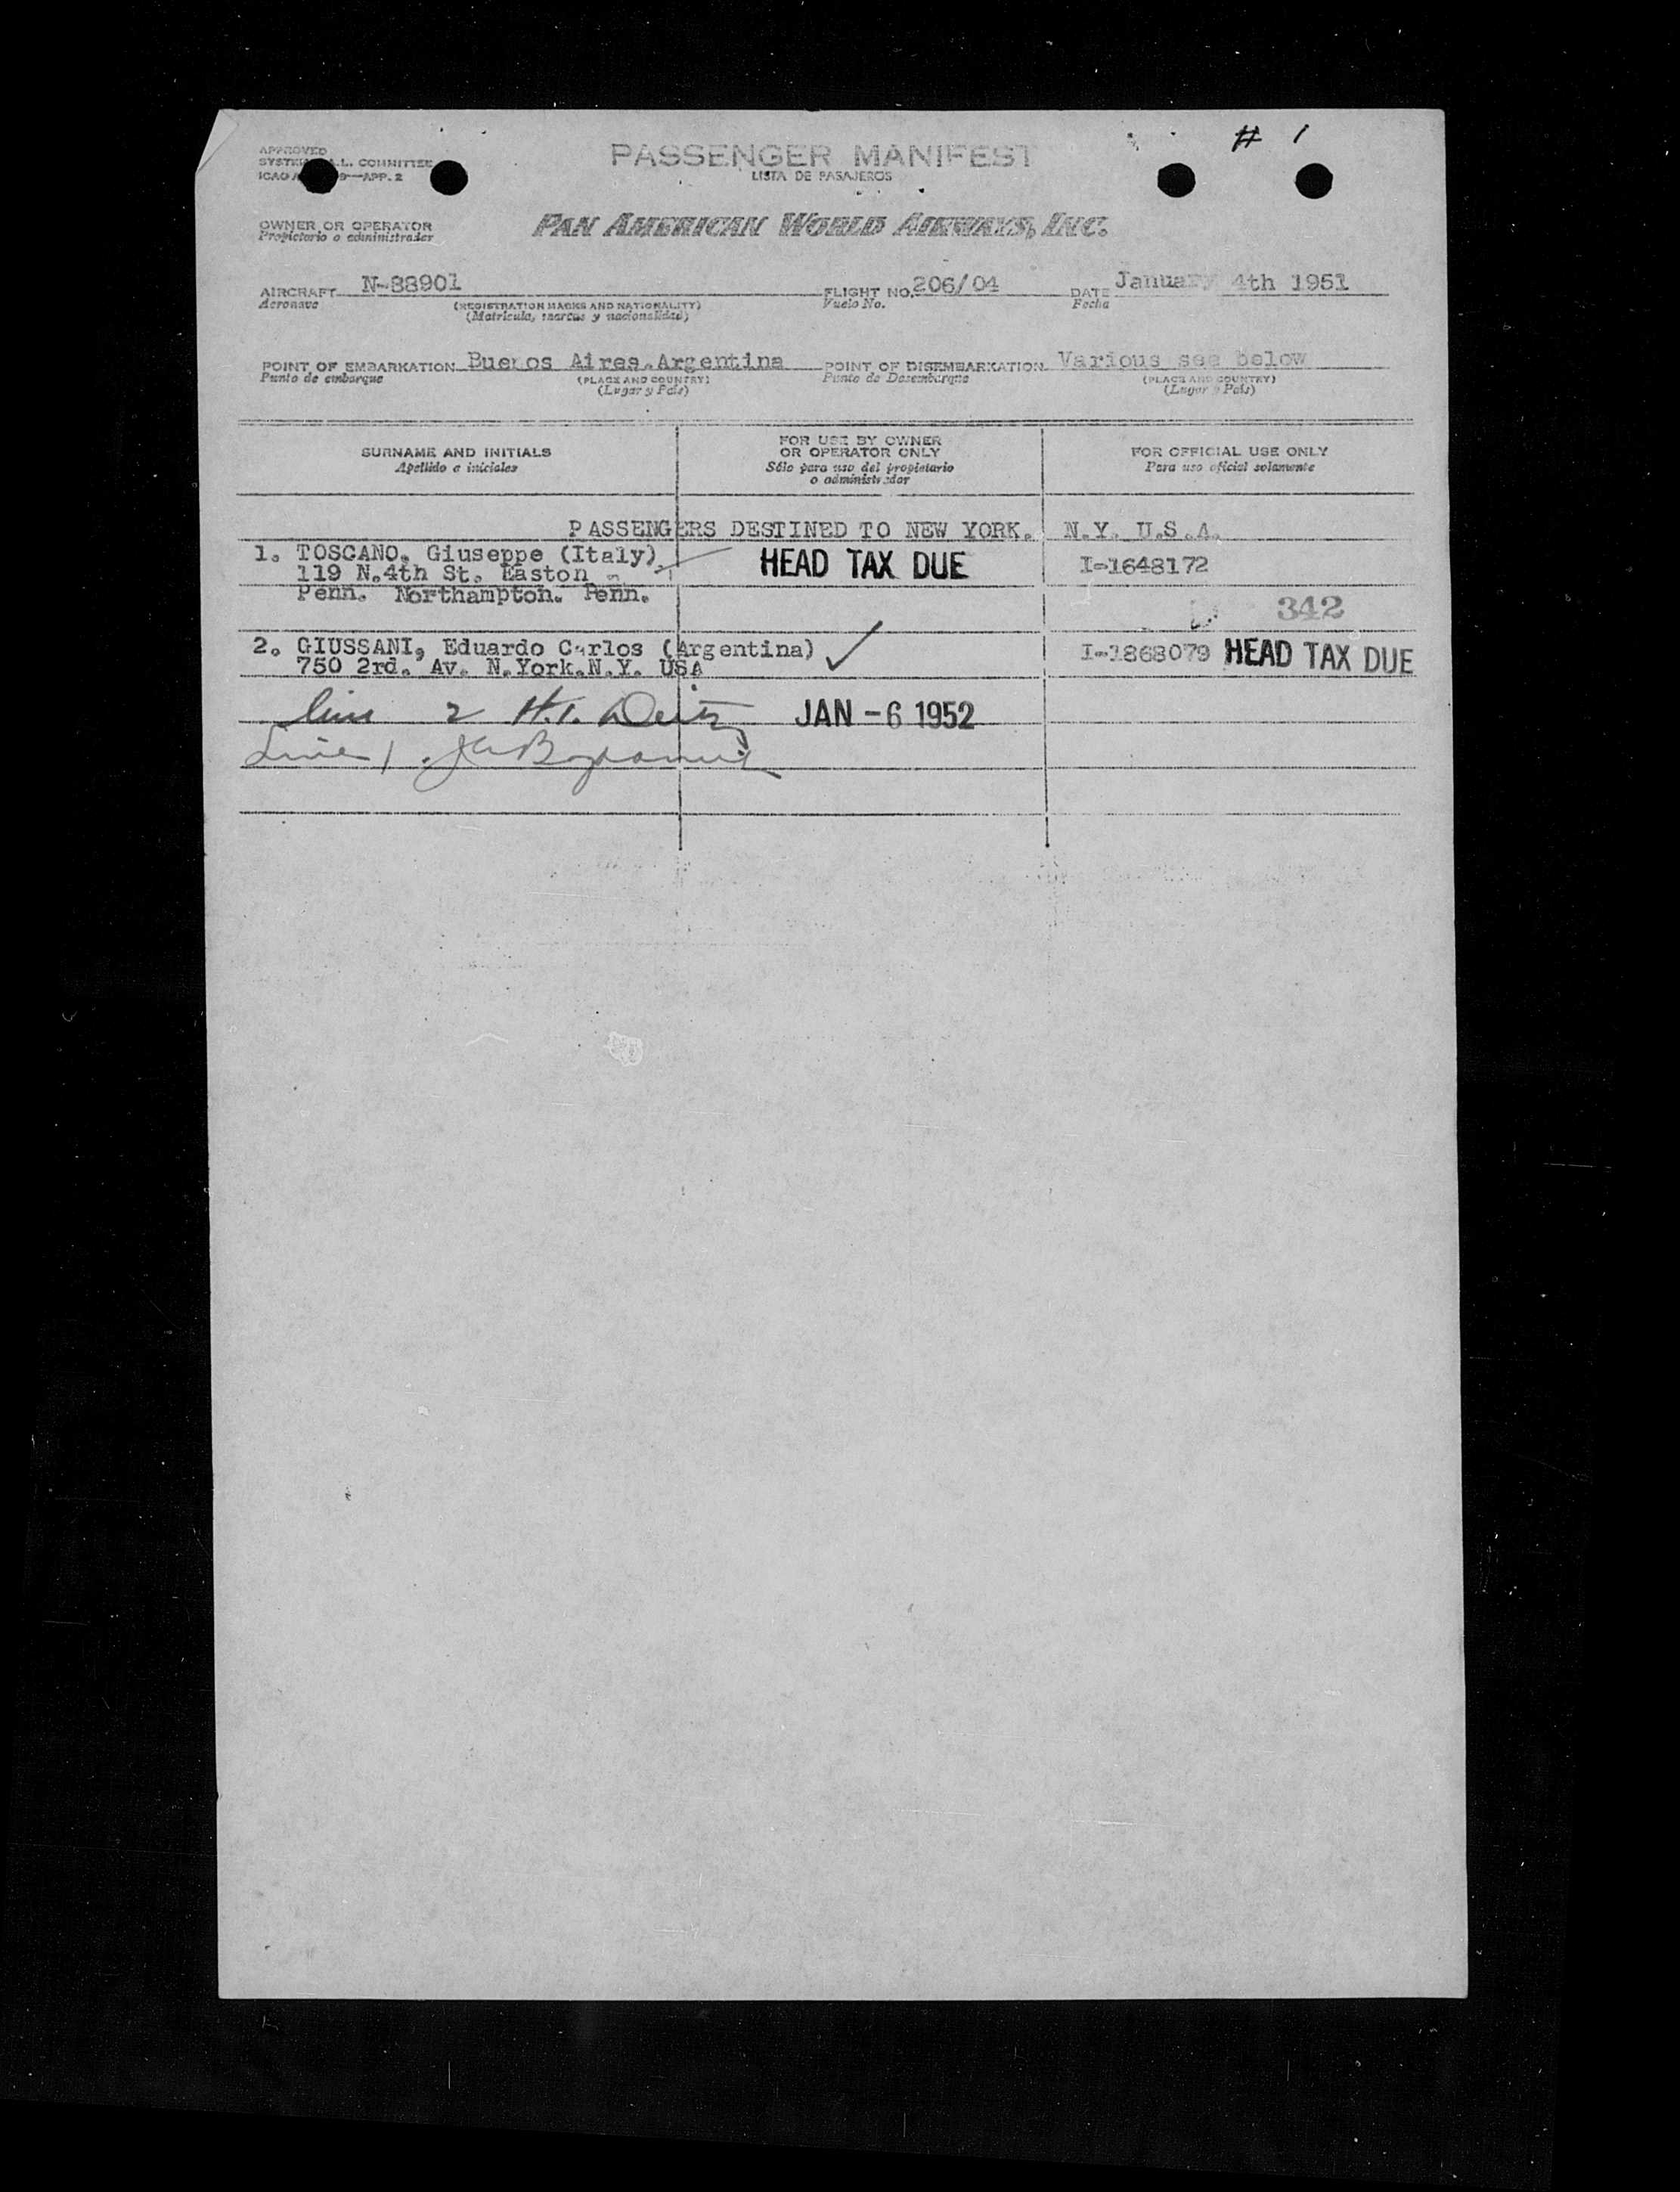 # 1
APPROVED
PASSENGER MANIFEST
SYSTEM A.L. COMMITTEE
LISTA DE PASAJEROS
ICAO 9—APP. 2
OWNER OR OPERATOR
PAN AMERICAN WORLD AIRWAYS, INC.
Propietario o administrador
AIRCRAFT N-88901 FLIGHT NO. 206/04 DATE January 4th 1951
Aeronave (REGISTRATION MARKS AND NATIONALITY) Vuelo No. Fecha
(Matrícula, marcas y nacionalidad)
POINT OF EMBARKATION Buenos Aires.Argentina POINT OF DISEMBARKATION Various see below
Punto de embarque (PLACE AND COUNTRY) Punto de Desembarque (PLACE AND COUNTRY)
(Lugar y País) (Lugar y País)
SURNAME AND INITIALS
Apellido e iniciales
FOR USE BY OWNER
OR OPERATOR ONLY
Sólo para uso del propietario
o administrador
FOR OFFICIAL USE ONLY
Para uso oficial solamente
PASSENGERS DESTINED TO NEW YORK. N.Y. U.S.A.
1. TOSCANO. Giuseppe (Italy) HEAD TAX DUE I-1648172
119 N.4th St. Easton
Penn. Northampton. Penn.
342
2. GIUSSANI, Eduardo Carlos (Argentina) I-1868079 HEAD TAX DUE
750 2rd. Av. N.York.N.Y. USA
2 H.I. JAN -6 1952
Line 1.